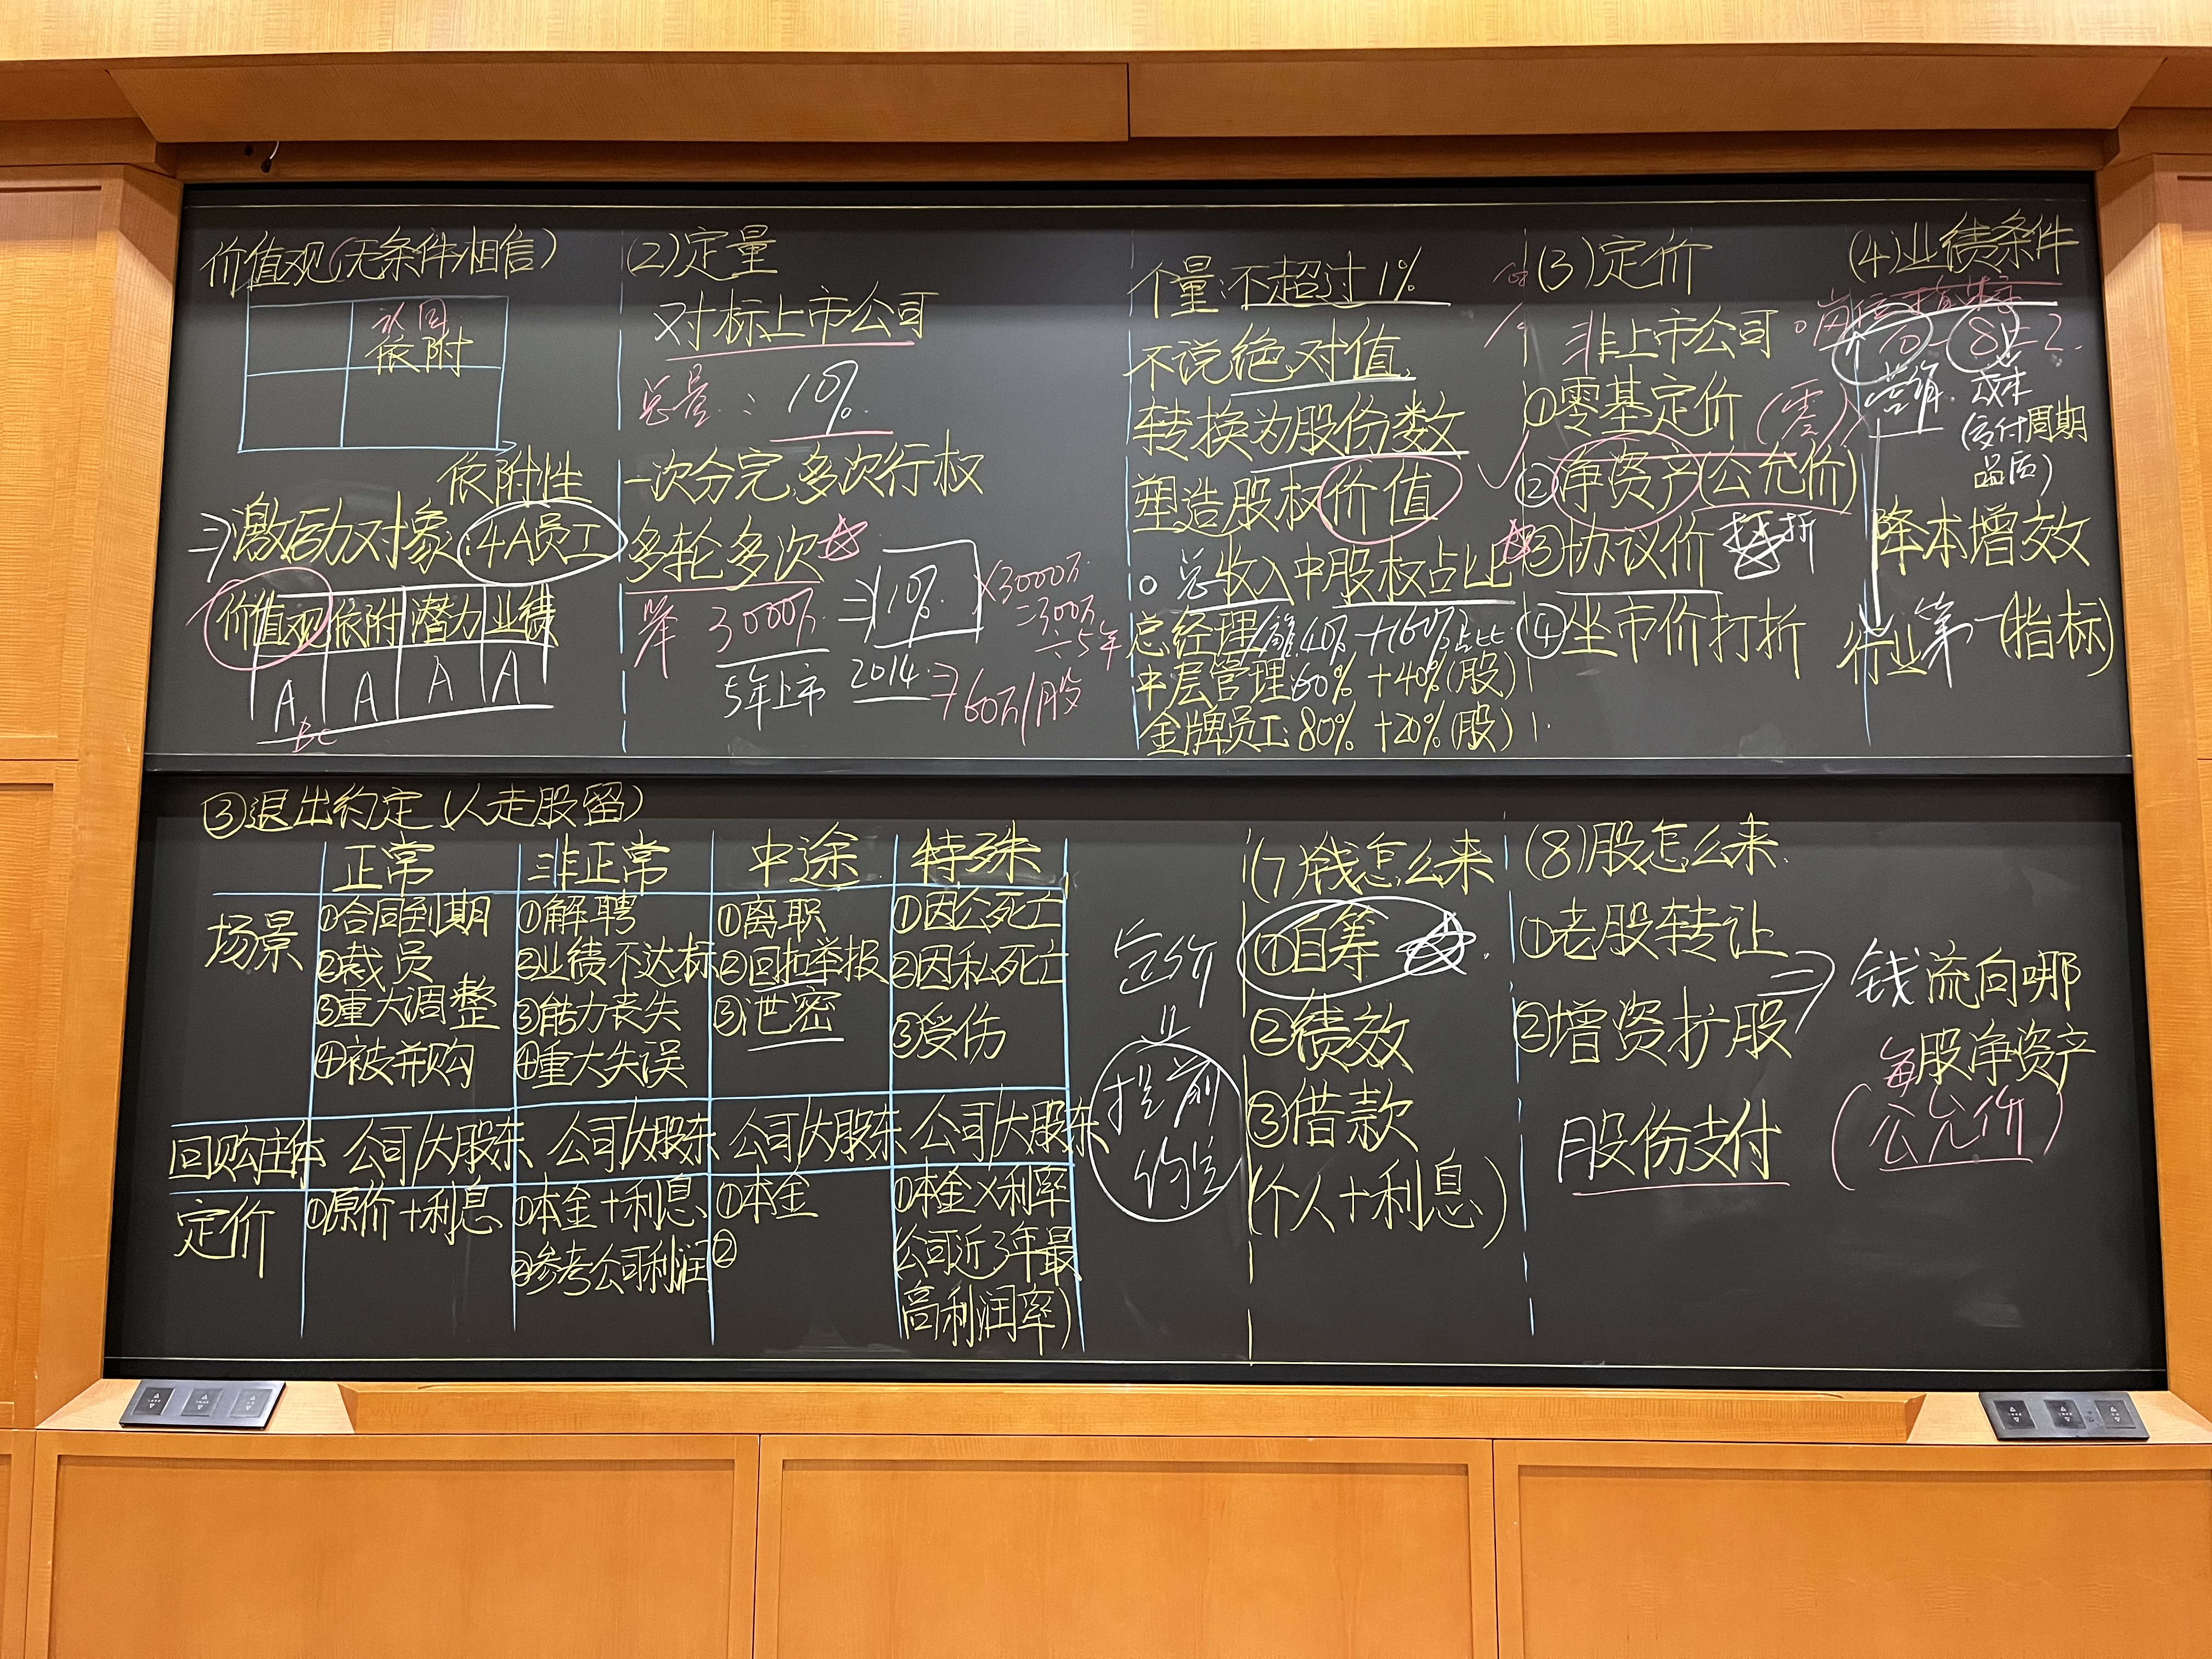 价值观(无条件相信)
认同
依附
依附性
⇒激励对象:4A员工
价值观 依附 潜力 业绩
A A A A
BC
(2)定量
对标上市公司
总量: 10%
一次分完,多次行权
多轮多次
举 3000万 ⇒ 10% ×3000万
=300万
÷5年
5年上市 2014 ⇒60万/股
个量:不超过1%
不说绝对值
转换为股份数
塑造股权价值
总收入中股权占比
总经理 40% +60%占比
中层管理:60% +40%(股)
金牌员工:80% +20%(股)
(3)定价
非上市公司
①零基定价(零)
②净资产(公允价)
③协议价 折
④坐市价打折
(4)业绩条件
岗位指标
10-8=2
营销 成本
(交付周期
品质)
降本增效
行业第一(指标)
③退出约定(人走股留)
正常 非正常 中途 特殊
场景 ①合同到期 ①解聘 ①离职 ①因公死亡
②裁员 ②业绩不达标 ②回扣举报 ②因私死亡
③重大调整 ③能力丧失 ③泄密 ③受伤
④被并购 ④重大失误
回购主体 公司/大股东 公司/大股东 公司/大股东 公司/大股东
定价 ①原价+利息 ①本金+利息 ①本金 ①本金×利率
②参考公司利润 ② (公司近3年最
高利润率)
定价
提前
约定
(7)钱怎么来
①自筹
②绩效
③借款
(个人+利息)
(8)股怎么来
①老股转让
②增资扩股
股份支付
⇒钱流向哪
每股净资产
(公允价)